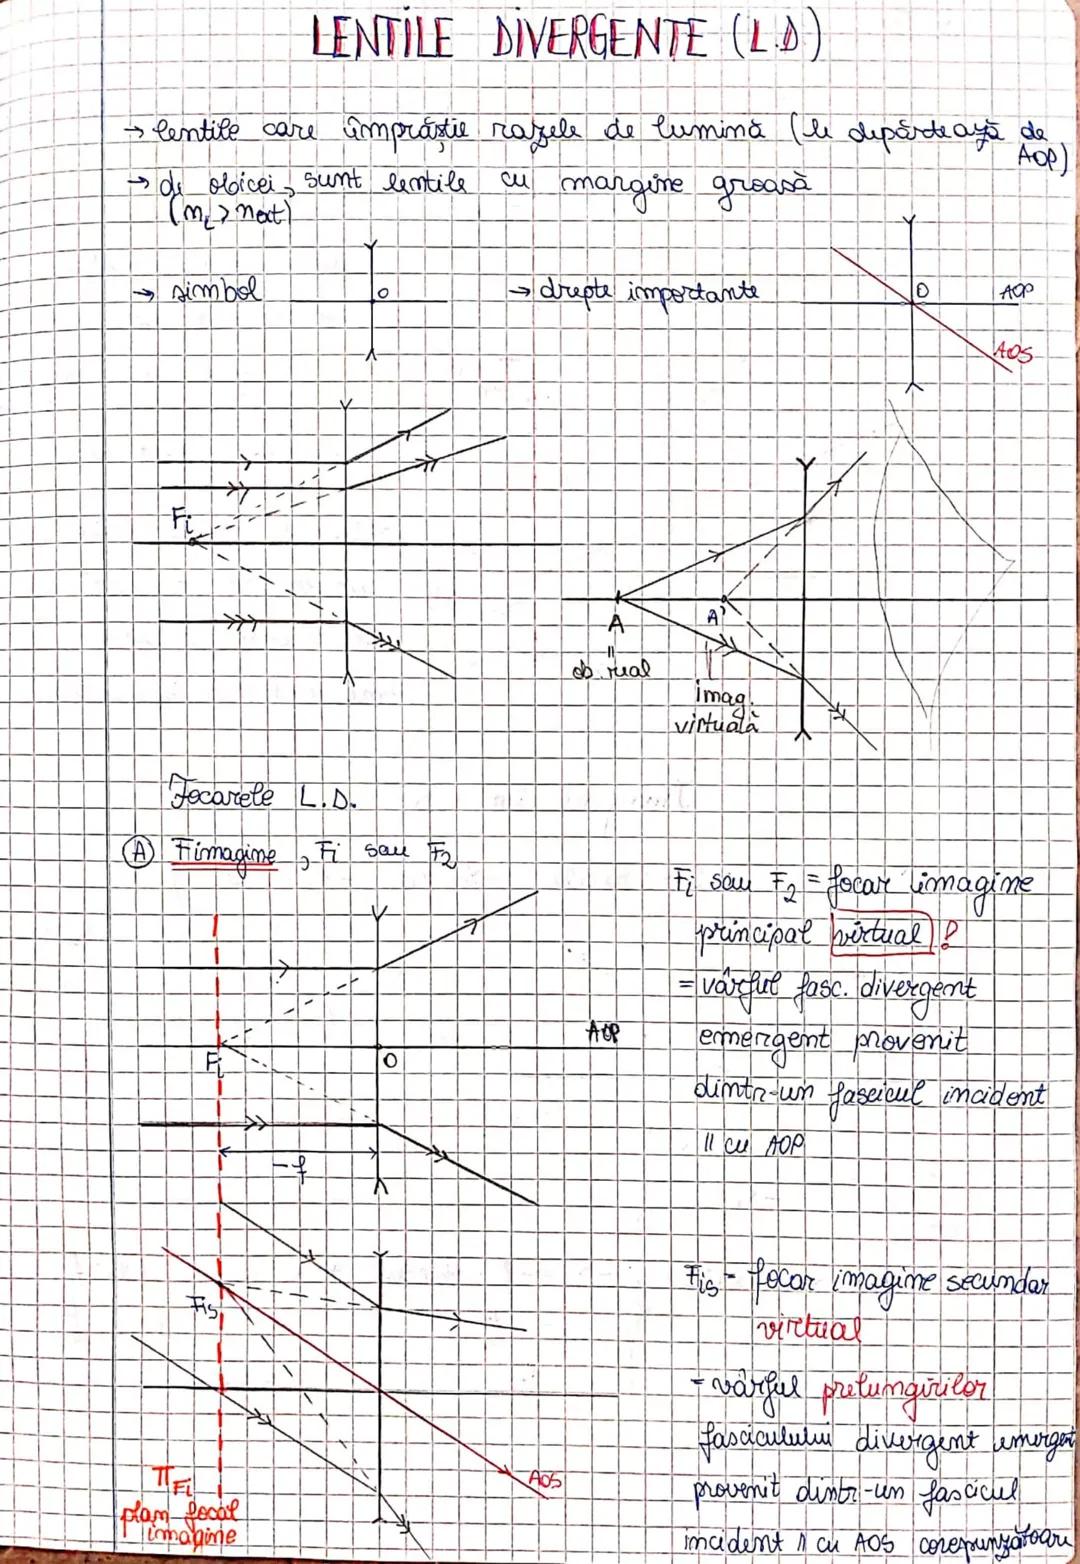 LENTILE DIVERGENTE (L.D)
→ lentile care împrăștie razele de lumină (le depărtează de AOP)
→ de obicei, sunt lentile cu margine groasă
(nL > next)
→ simbol
O
→ drepte importante
O
AOP
AOS
Fi
A
"
ob. real
A'
imag.
virtuală
Focarele L.D.
A Fimagine, Fi sau F2
Fi sau F2 = focar imagine
principal virtual !
= vârful fasc. divergent
emergent provenit
dintr-un fascicul incident
|| cu AOP
AOP
Fi
O
-f
Fis - focar imagine secundar
virtual
= vârful prelungirilor
fasciculului divergent emergent
provenit dintr-un fascicul
incident || cu AOS corespunzătoare
Fis
AOS
πFi
plan focal
imagine